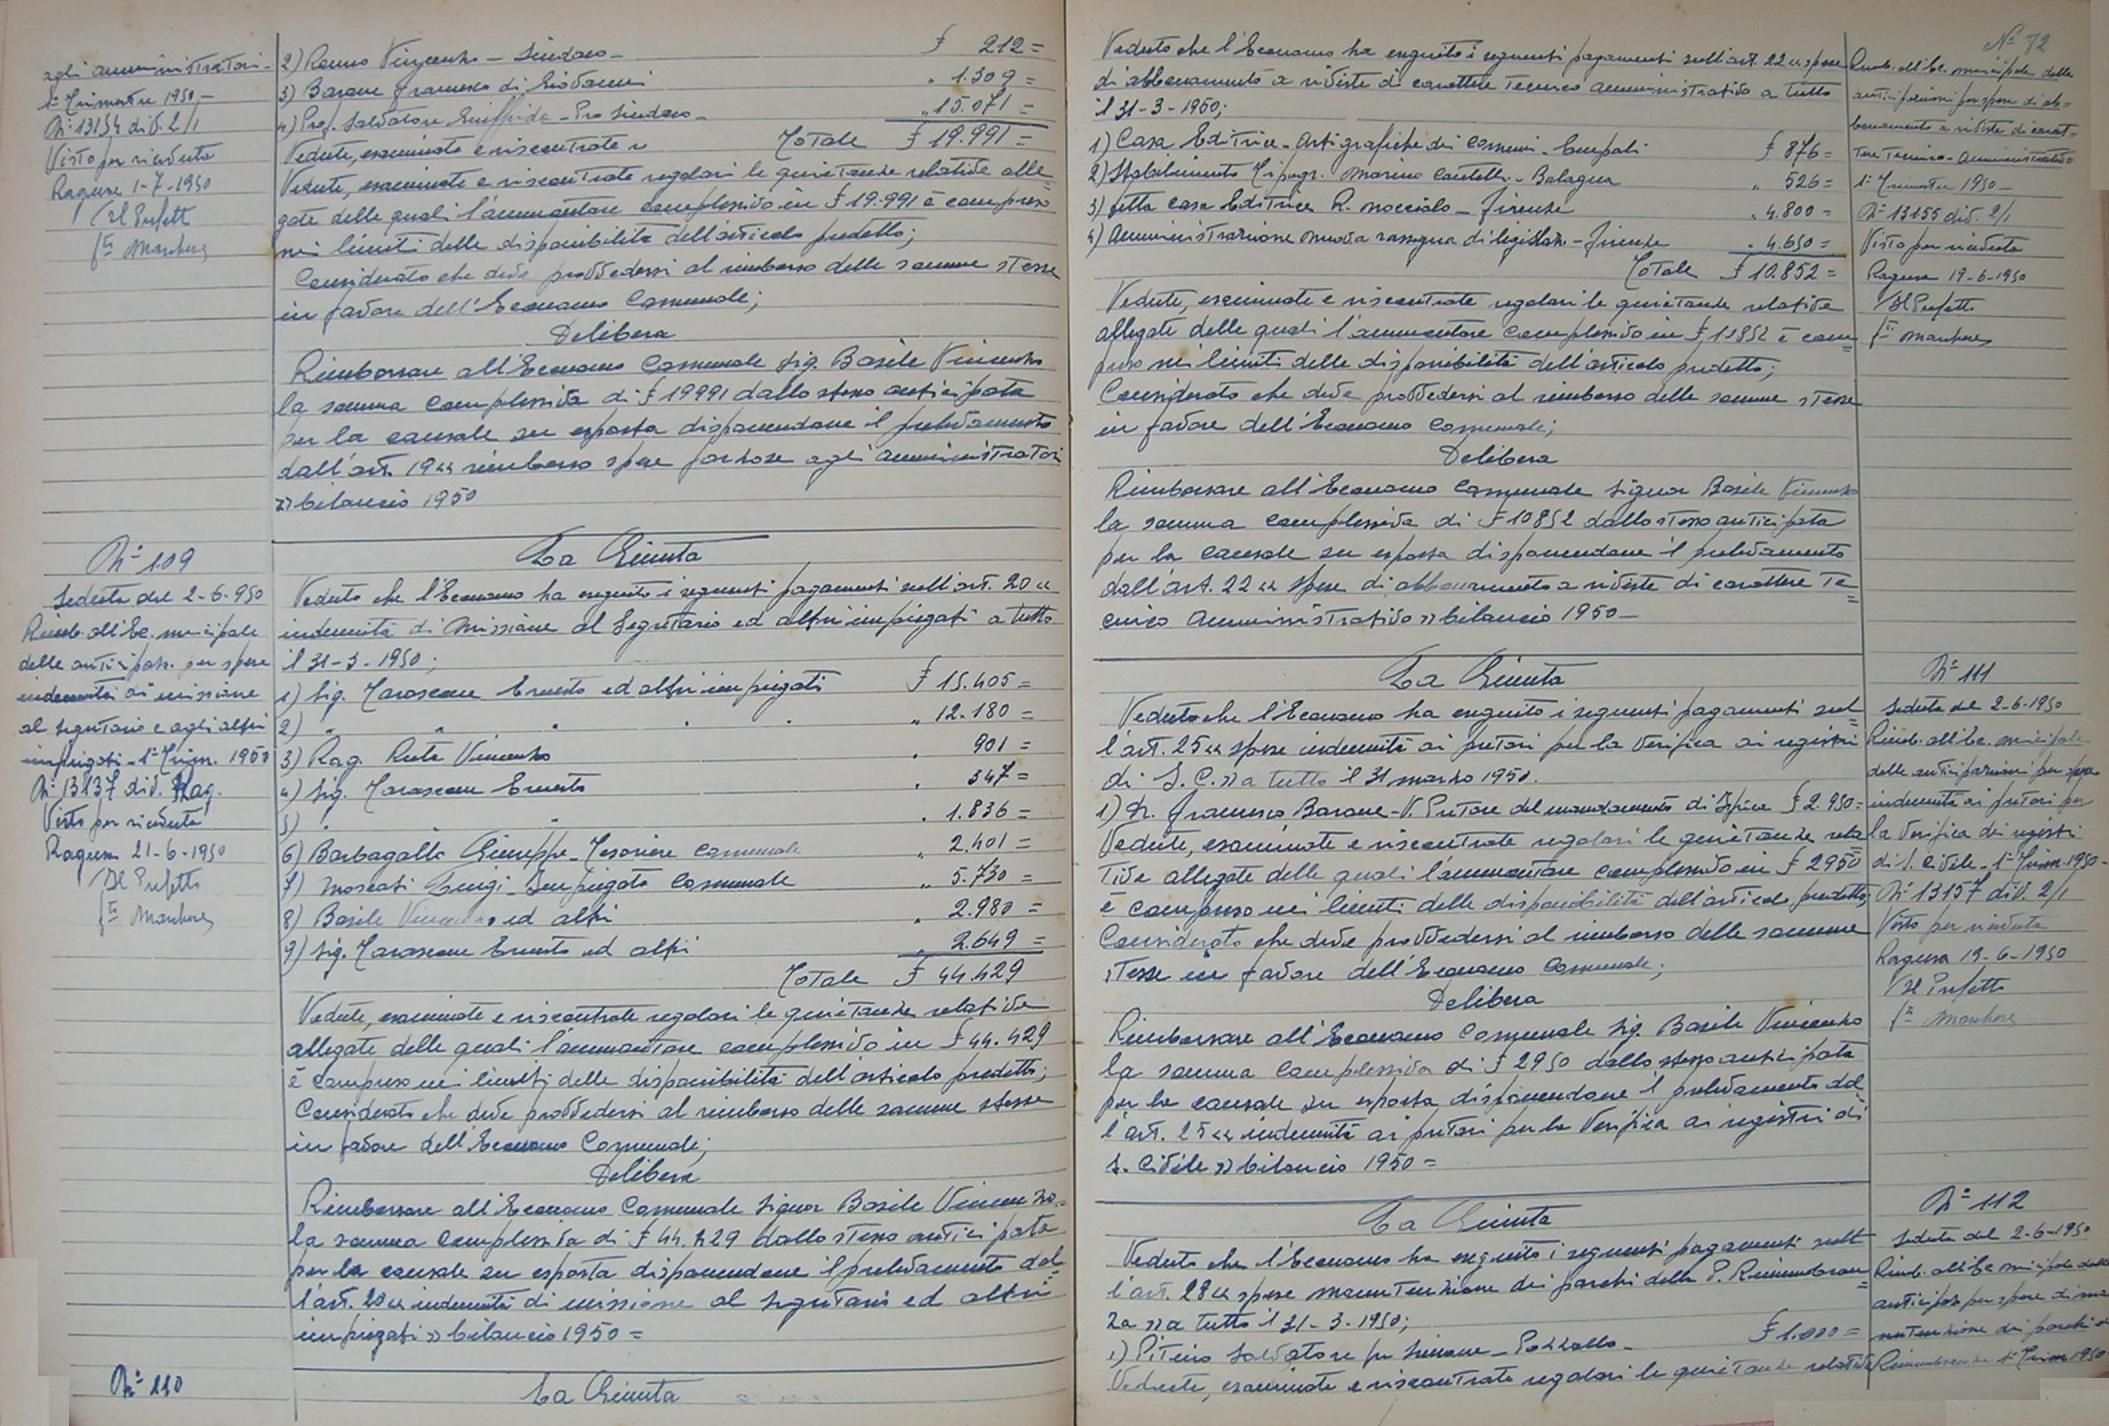 agli amministratori -
1° Trimestre 1950 -
N° 13154 div. 2/1
Visto per ricevuta
Ragusa 1-7-1950
Il Prefetto
2) Renno Vincenzo - Sindaco - £ 212 =
3) Barone Francesco di Giovanni " 1.309 =
4) Prof. Salvatore Giuffrida - Pro Sindaco - " 15.071 =
Vedute, esaminate e riscontrate r Totale £ 19.991 =
Vedute, esaminate e riscontrate regolari le quietanze relative alle=
gate delle quali l'ammontare complessivo in £ 19.991 è compreso
nei limiti delle disponibilità dell'articolo predetto;
Considerato che deve provvedersi al rimborso delle somme stesse
in favore dell'Economo Comunale;
Delibera
Rimborsare all'Economo Comunale Sig. Basile Vincenzo
la somma complessiva di £ 19991 dallo stesso anticipata
per la causale su esposta disponendone il prelevamento
dall'art. 19 « rimborso spese forzose agli amministratori
» bilancio 1950
N° 109
Seduta del 2-6-950
Rimb. all'Ec. municipale
delle anticipaz. per spese
indennità di missione
al segretario e agli altri
impiegati - 1° Trim. 1950
N° 13137 div. Rag.
Visto per ricevuta
Ragusa 21-6-1950
Il Prefetto
La Giunta
Veduto che l'Economo ha eseguito i seguenti pagamenti sull'art. 20 «
indennità di missione al Segretario ed altri impiegati a tutto
il 31-3-1950;
1) Sig. Tarascone Ernesto ed altri impiegati £ 15.405 =
2) " " " " " " 12.180 =
3) Rag. Ruta Vincenzo " 901 =
4) Sig. Tarascone Ernesto " 347 =
5) " " " 1.836 =
6) Barbagallo Giuseppe - Tesoriere Comunale " 2.401 =
7) Moscati Luigi - Impiegato Comunale " 5.730 =
8) Basile Vincenzo ed altri " 2.980 =
9) Sig. Tarascone Ernesto ed altri " 2.649 =
Totale £ 44.429
Vedute, esaminate e riscontrate regolari le quietanze relative
allegate delle quali l'ammontare complessivo in £ 44.429
è compreso nei limiti delle disponibilità dell'articolo predetto;
Considerato che deve provvedersi al rimborso delle somme stesse
in favore dell'Economo Comunale;
Delibera
Rimborsare all'Economo Comunale Signor Basile Vincenzo =
la somma complessiva di £ 44.429 dallo stesso anticipata
per la causale su esposta disponendone il prelevamento dal=
l'art. 20 « indennità di missione al segretario ed altri
impiegati » bilancio 1950 =
N° 110
La Giunta
N° 72
Veduto che l'Economo ha eseguito i seguenti pagamenti sull'art. 22 « spese
di abbonamento a riviste di carattere tecnico amministrativo a tutto
il 31-3-1950;
1) Casa Editrice - Arti grafiche dei Comuni - Empoli £ 876 =
2) Stabilimento Tipogr. Marino Cantelli - Bologna " 526 =
3) Ditta casa Editrice R. Noccioli - Firenze " 4.800 =
4) Amministrazione nuova rassegna di legislaz. - Firenze " 4.650 =
Totale £ 10.852 =
Vedute, esaminate e riscontrate regolari le quietanze relative
allegate delle quali l'ammontare complessivo in £ 10852 è com=
preso nei limiti delle disponibilità dell'articolo predetto;
Considerato che deve provvedersi al rimborso delle somme stesse
in favore dell'Economo Comunale;
Delibera
Rimborsare all'Economo Comunale Signor Basile Vincenzo
la somma complessiva di £ 10852 dallo stesso anticipata
per la causale su esposta disponendone il prelevamento
dall'art. 22 « spese di abbonamento a riviste di carattere te=
cnico amministrativo » bilancio 1950 -
Rimb. all'Ec. municipale delle
anticipazioni per spese di ab=
bonamento a riviste di carat=
tere Tecnico-Amministrativo
1° Trimestre 1950 -
N° 13155 div. 2/1
Visto per ricevuta
Ragusa 19-6-1950
Il Prefetto
La Giunta
Veduto che l'Economo ha eseguito i seguenti pagamenti sul=
l'art. 25 « spese indennità ai pretori per la verifica ai registri
di S. C. » a tutto il 31 marzo 1950.
1) Dr. Francesco Barone - V. Pretore del mandamento di Ispica £ 2.950 =
Vedute, esaminate e riscontrate regolari le quietanze rela=
tive allegate delle quali l'ammontare complessivo in £ 2950
è compreso nei limiti delle disponibilità dell'articolo predetto;
Considerato che deve provvedersi al rimborso delle somme
stesse in favore dell'Economo Comunale;
Delibera
Rimborsare all'Economo Comunale Sig. Basile Vincenzo
la somma complessiva di £ 2950 dallo stesso anticipata
per la causale su esposta disponendone il prelevamento dal=
l'art. 25 « indennità ai pretori per la Verifica ai registri di
S. Civile » bilancio 1950 =
N° 111
Seduta del 2-6-1950
Rimb. all'Ec. municipale
delle anticipazioni per spese
indennità ai pretori per
la verifica dei registri
di S. Civile - 1° Trim. 1950 -
N° 13157 div. 2/1
Visto per ricevuta
Ragusa 19-6-1950
Il Prefetto
La Giunta
Veduto che l'Economo ha eseguito i seguenti pagamenti sul=
l'art. 28 « spese manutenzione dei parchi della P. Rimembran=
za » a tutto il 31-3-1950;
1) Pitino Salvatore fu Simone - Pozzallo - £ 1.000 =
Vedute, esaminate e riscontrate regolari le quietanze relative
N° 112
Seduta del 2-6-1950
Rimb. all'Ec. municipale delle
anticipaz. per spese di ma
nutenzione dei parchi
Rimembranze 1° Trim. 1950